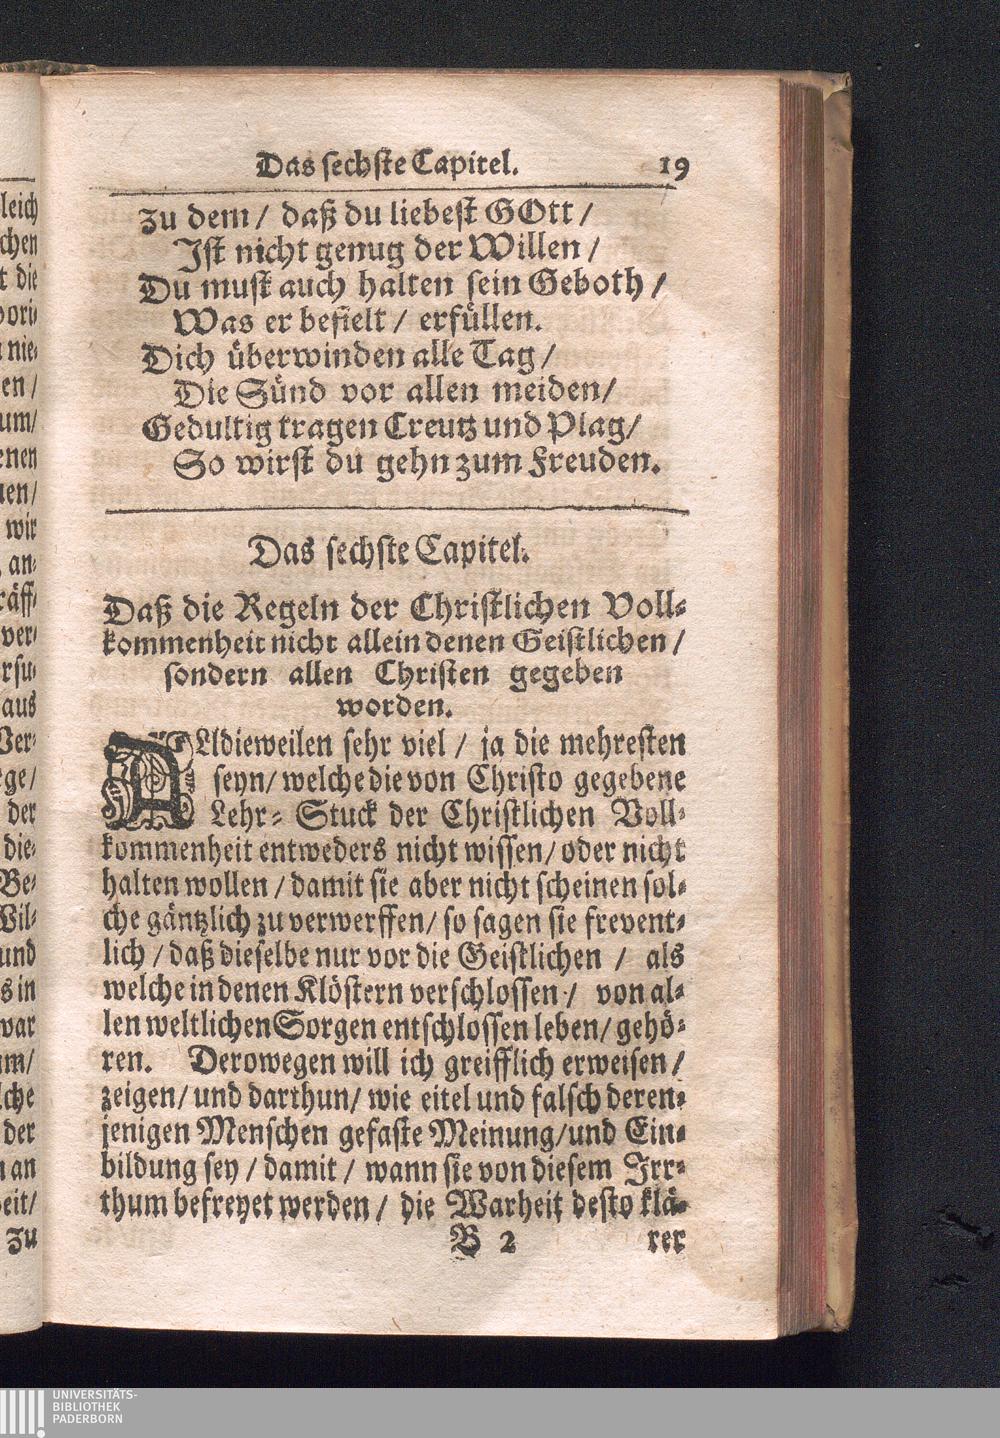 Das sechste Capitel. 19
zu dem / daß du liebest GOtt /
Ist nicht genug der Willen /
Du must auch halten sein Geboth /
Was er befielt / erfüllen.
Dich überwinden alle Tag /
Die Sünd vor allen meiden /
Gedultig tragen Creutz und Plag /
So wirst du gehn zum Freuden.
Das sechste Capitel.
Daß die Regeln der Christlichen Voll-
kommenheit nicht allein denen Geistlichen /
sondern allen Christen gegeben
worden.
ALldieweilen sehr viel / ja die mehresten
seyn / welche die von Christo gegebene
Lehr-Stuck der Christlichen Voll-
kommenheit entweders nicht wissen / oder nicht
halten wollen / damit sie aber nicht scheinen sol-
che gäntzlich zu verwerffen / so sagen sie frevent-
lich / daß dieselbe nur vor die Geistlichen / als
welche in denen Klöstern verschlossen / von al-
len weltlichen Sorgen entschlossen leben / gehö-
ren. Derowegen will ich greifflich erweisen /
zeigen / und darthun / wie eitel und falsch deren-
jenigen Menschen gefaste Meinung / und Ein-
bildung sey / damit / wann sie von diesem Irr-
thum befreyet werden / die Warheit desto klä-
B 2 rer
UNIVERSITÄTS-
BIBLIOTHEK
PADERBORN